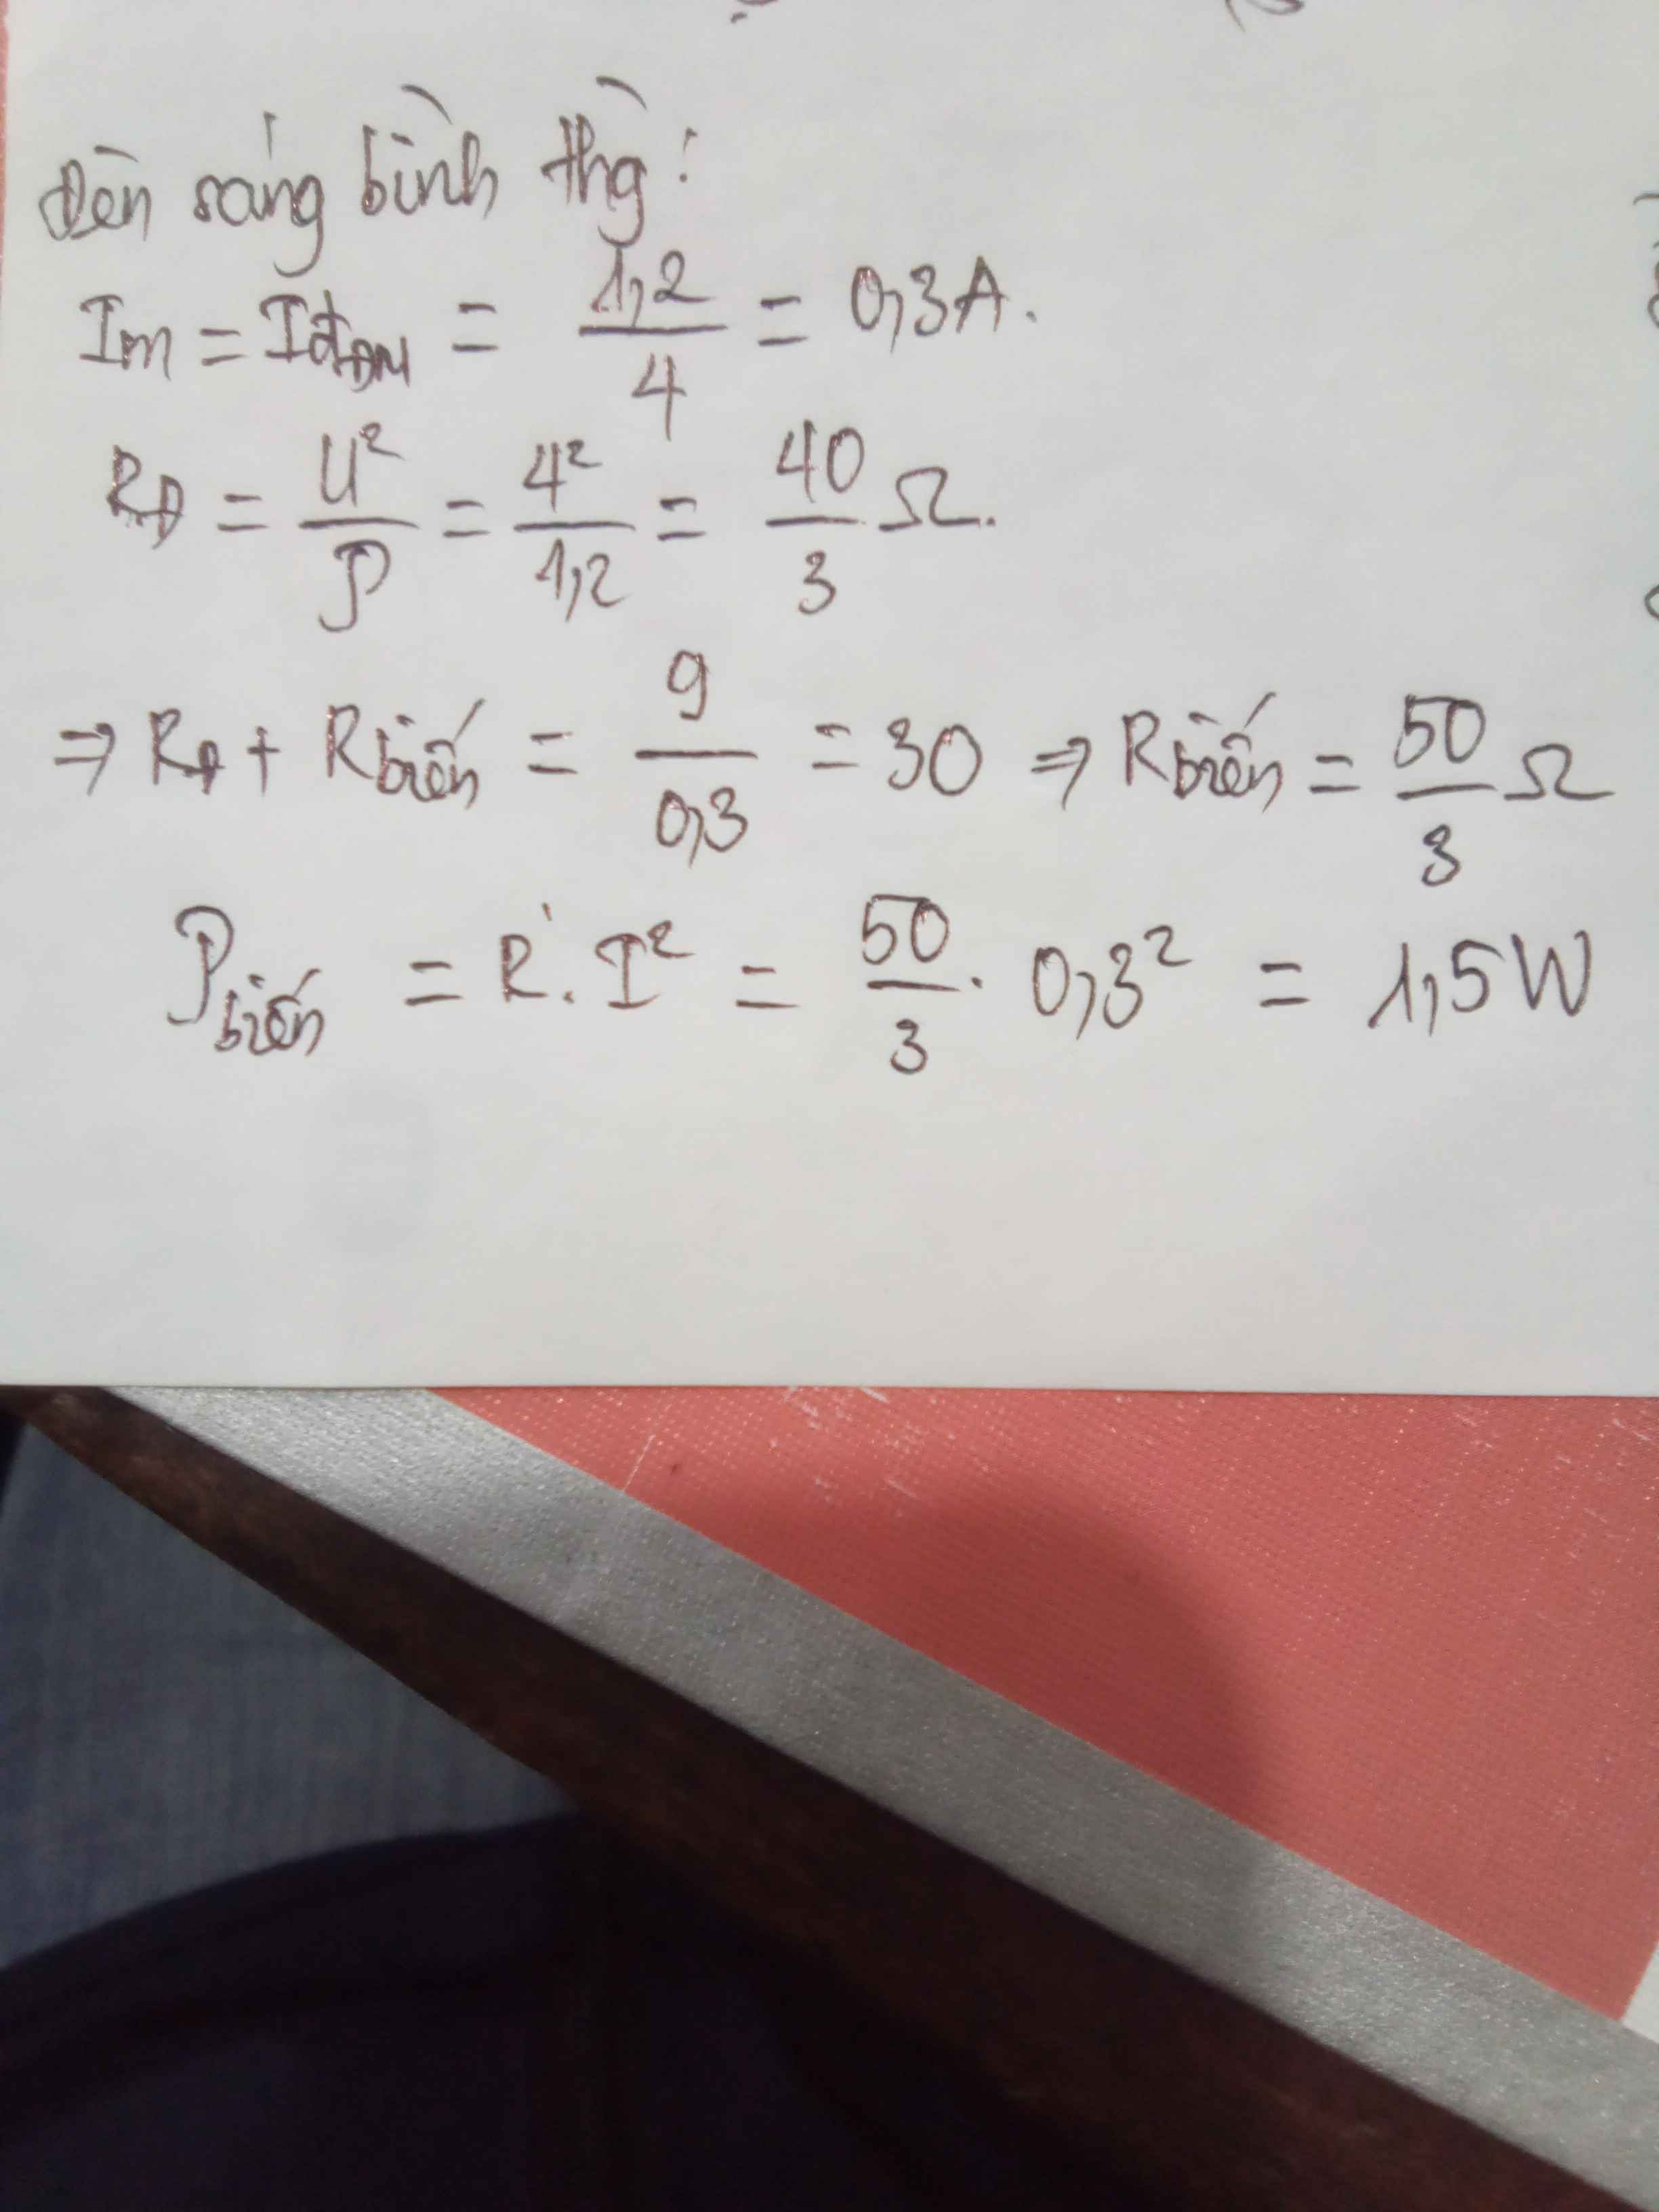 Đèn sáng bình thg:
Im = IđĐM = 1,2/4 = 0,3A.
RĐ = U²/P = 4²/1,2 = 40/3 Ω.
⇒ RĐ + Rbiến = 9/0,3 = 30 ⇒ Rbiến = 50/3 Ω
Pbiến = R.I² = 50/3 . 0,3² = 1,5W